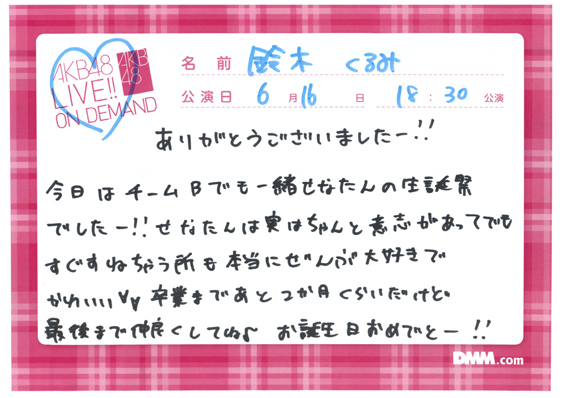 AKB48
LIVE!!
ON DEMAND
AKB
48
名前 鈴木 くるみ
公演日 6月16日 18:30公演
ありがとうございましたー!!
今日はチームBでも一緒せなたんの生誕祭
でしたー!!せなたんは実はちゃんと意志があってでも
すぐすねちゃう所も本当にぜんぶ大好きで
かわいい♡♡ 卒業まであと2か月くらいだけど
最後まで仲良くしてね♪ お誕生日おめでとー!!
DMM.com